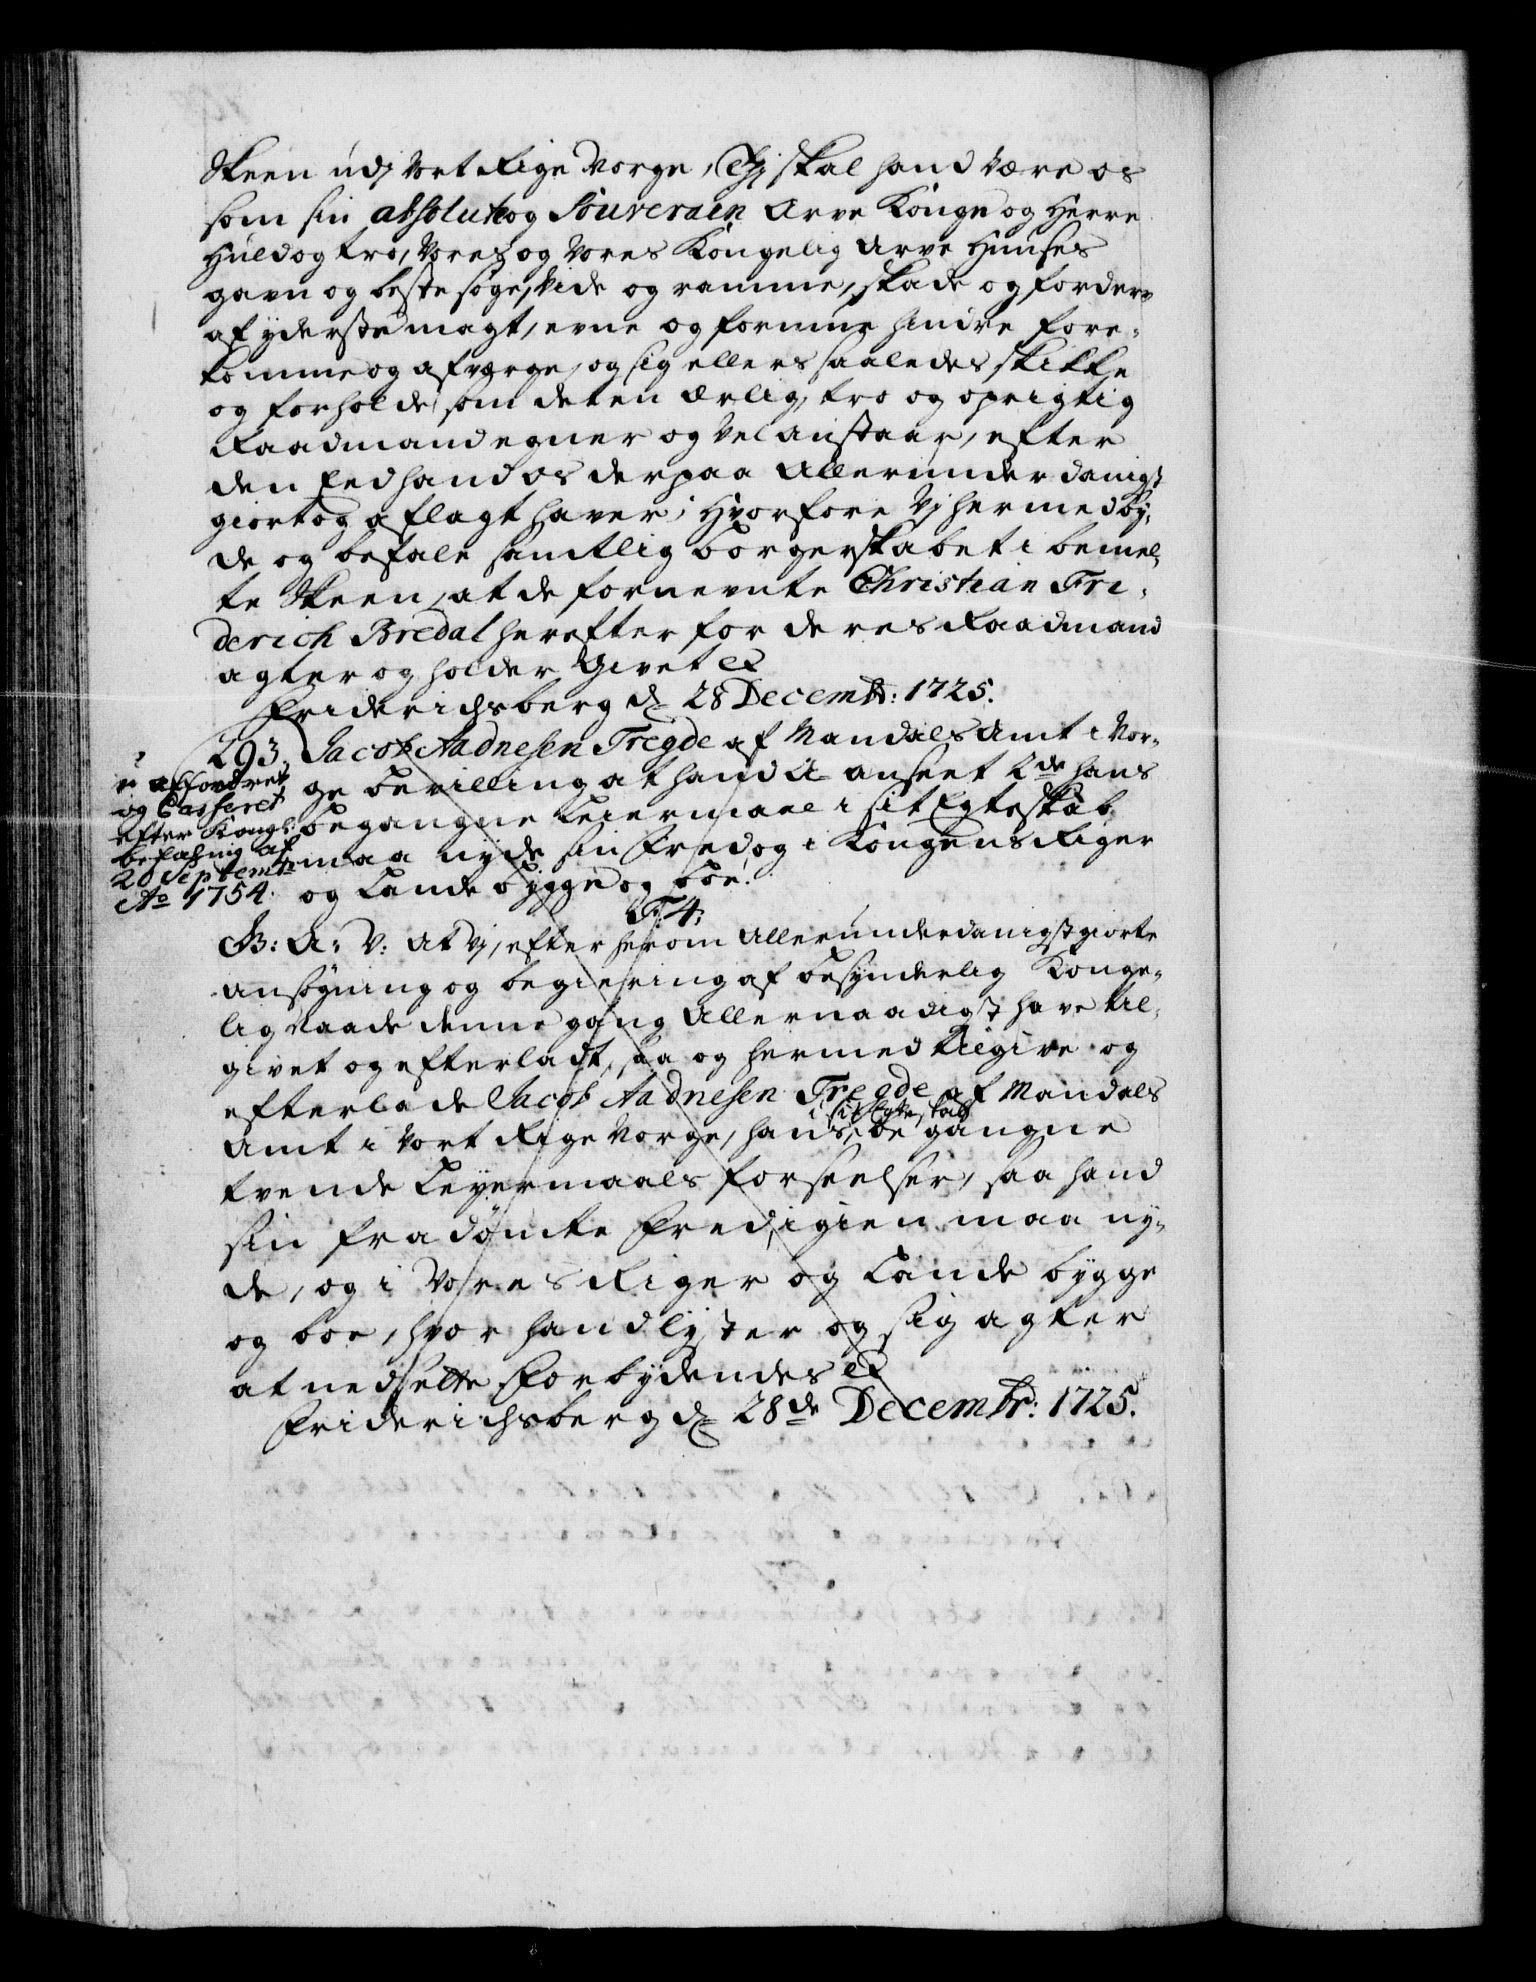 Skeen udj Vort Rige Norge, Thj skal hand være os
som sin absolute og Souverain Arve Konge og Herre
Huld og tro, Vores og Vores Kongelig Arve Huuses
gavn og beste søge, Vide og ramme, skade og forderv
af yderste magt, evne og formue hindre fore-
komme og afverge, og sig ellers saaledes skikke
og forholde som det en ærlig, tro og oprigtig
Raadmand egner og vel anstaar, efter
den Eed hand os derpaa Allerunderdanigst
giort og aflagt haver; Hvorfore Vj hermed by-
de og befale samtlig borgerskabet i bemel-
te Skeen, at de fornevnte Christian Fri-
derich Bredal herefter for deres Raadmand
agter og holder Givet etc
Friderichsberg d. 28 Decembr: 1725.
293. Jacob Aadnesen Tregde af Mandals Amt i Nor-
ge bevilling at hand U anseet 2de hans
begangne Leiermaal i sit Egteskab
maa nyde sin Fred, og i Kongens Riger
og Lande bygge og boe.
er affordret
og Casseret
efter Kongl:
befaling af
20 Septembr
Ao 1754.
F. 4:
G: A: V: At Vj, efter herom Allerunderdanigst giorte
ansøgning og begiering af besynderlig Konge-
lig Naade denne gang Allernaadigst have til-
givet og efterladt, saa og hermed tilgive og
efterlade Jacob Aadnesen Tregde af Mandals
Amt i Vort Rige Norge, hans i sit Egteskab begangne
tvende Leyermaals forseelser, saa hand
sin fradømte Fred, igien maa ny-
de, og i Vores Riger og Lande bygge
og boe, hvor hand lyster og sig agter
at nedsette Forbydendes etc
Friderichsberg d. 28de Decembr: 1725.